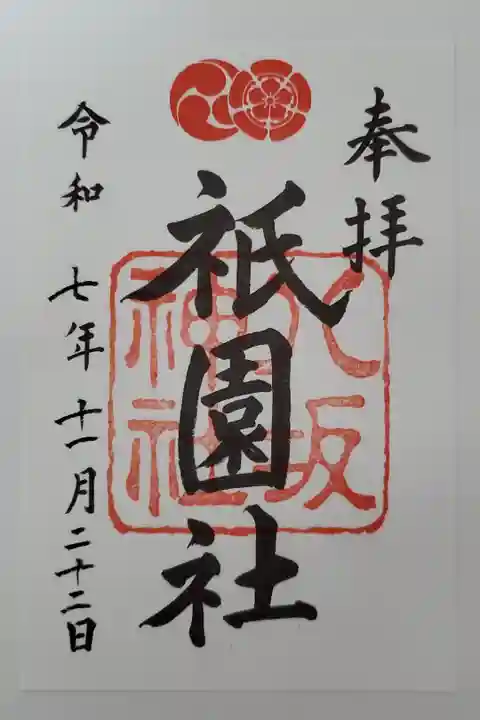 奉拝
祇園社
八坂
神社
令和 七年 十一月二十二日